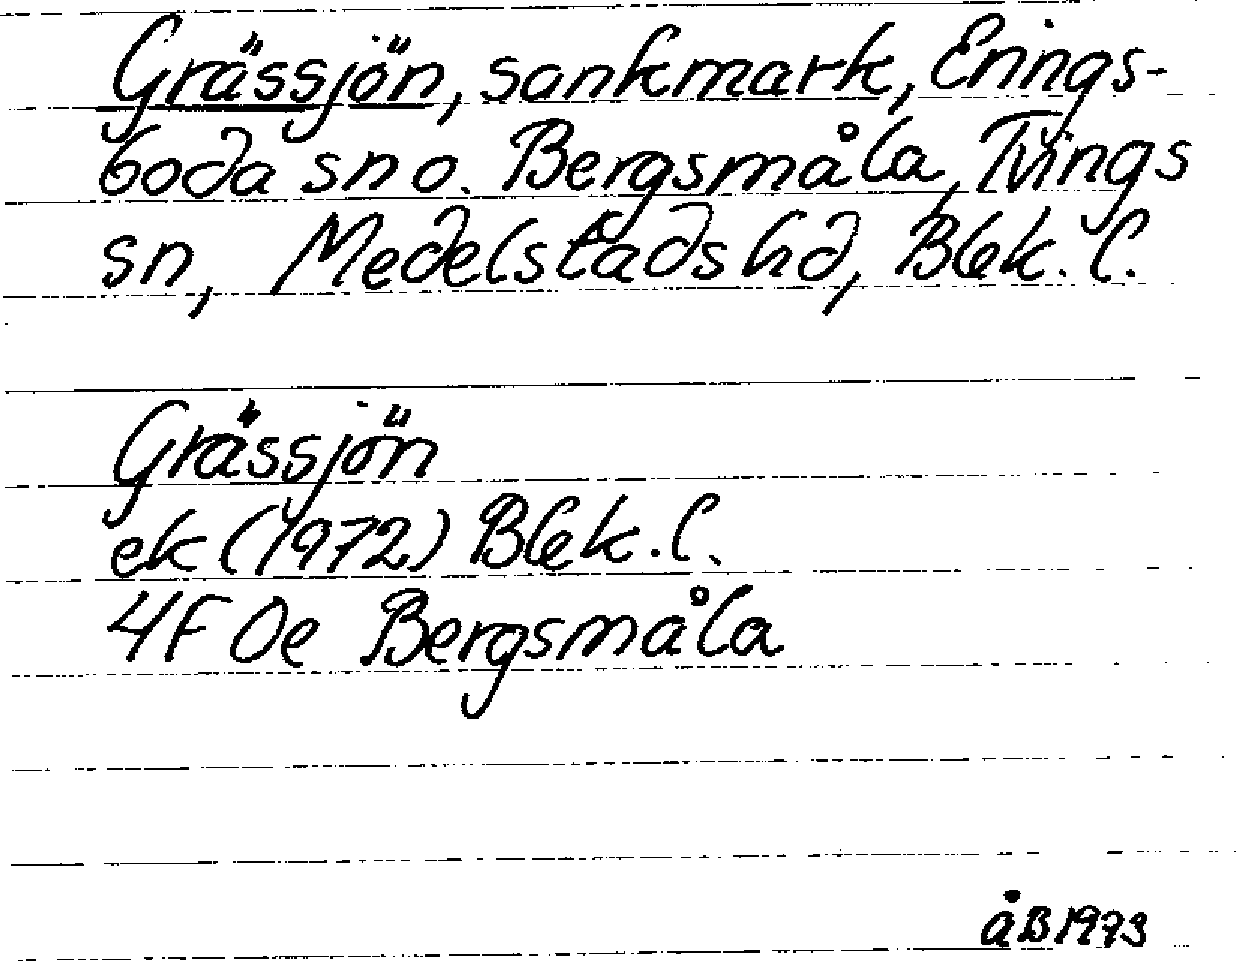 Grässjön, sankmark, Erings-
boda sn o. Bergsmåla, Tvings
sn, Medelstads hd, Blek. l.
Grässjön
ek (1972) Blek. l.
4F 0e Bergsmåla
åB 1973